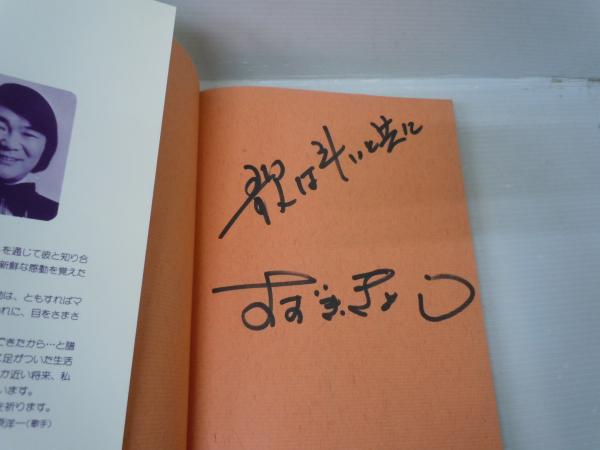 を通じて彼と知り合
新鮮な感動を覚えた
は、ともすればマ
れに、目をさまさ
できたから…と謄
足がついた生活
が近い将来、私
います。
を祈ります。
洋一(歌手)
歌は斗いと共に
すずききよし